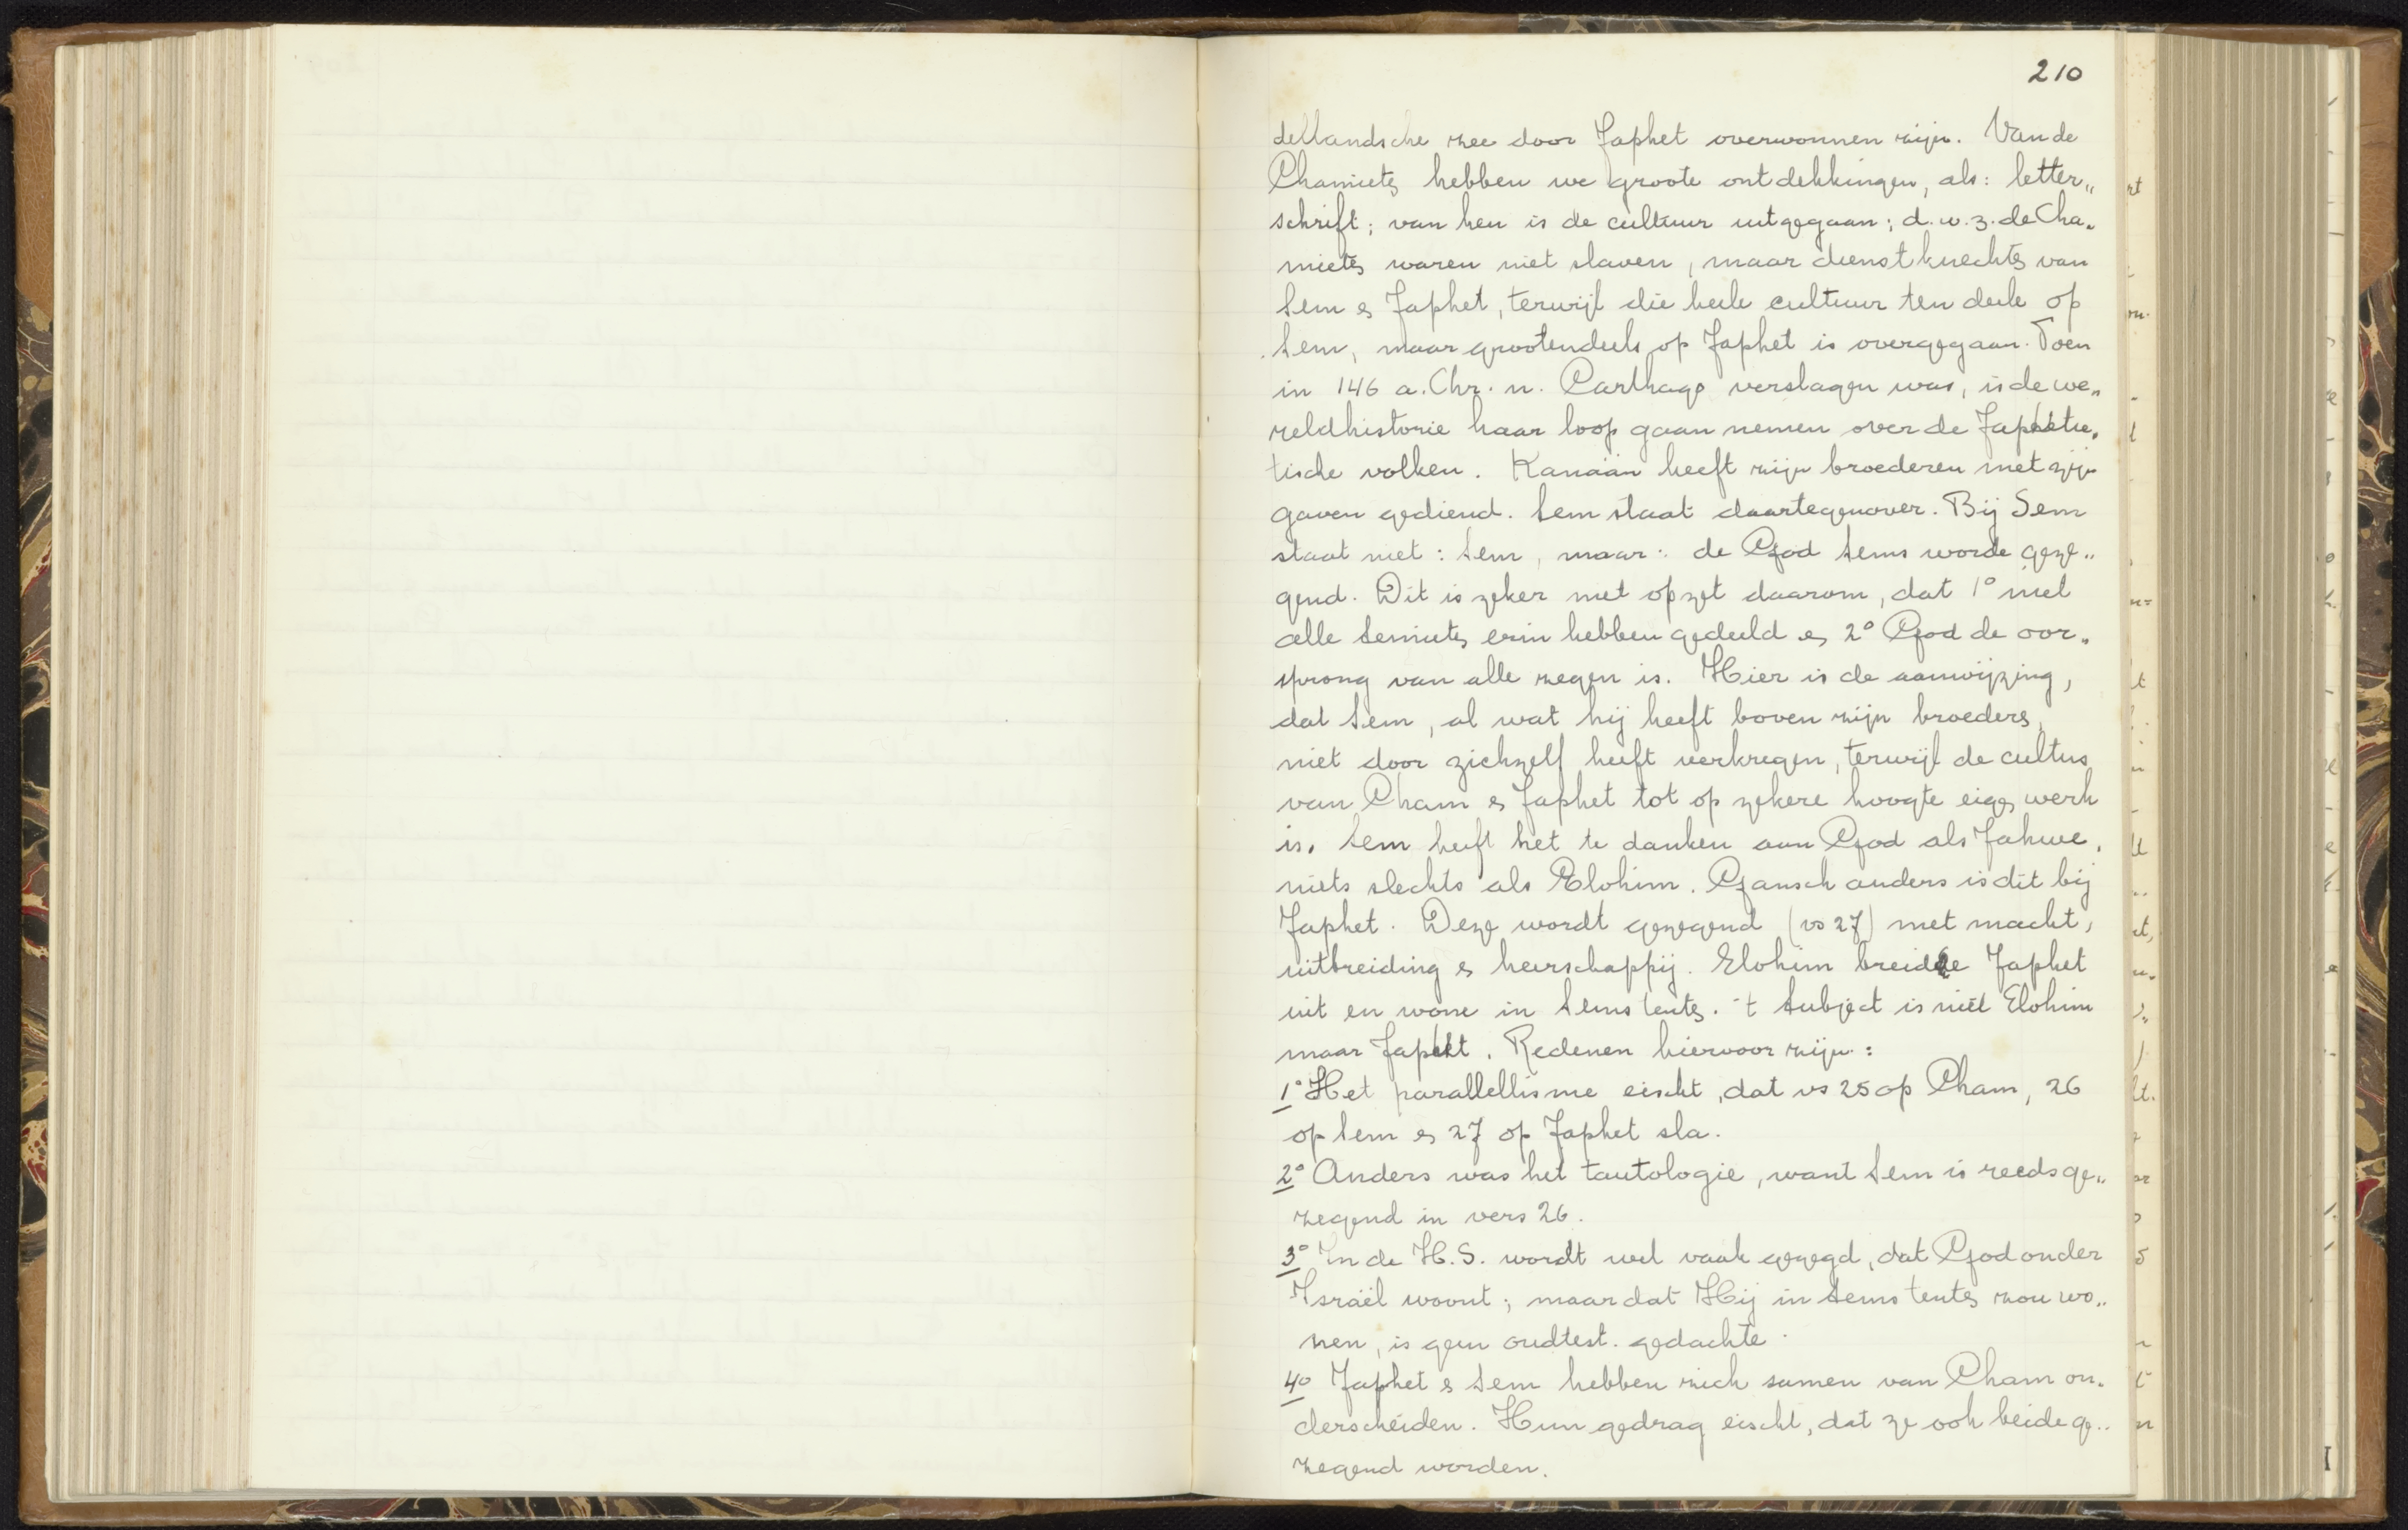 210
dellandsche zee door Japhet overwonnen zijn. Van de
Chamieten hebben we groote ontdekkingen, als: letter„
schrift; van hen is de cultuur uitgegaan; d.w.z. de Cha„
mieten waren niet slaven, maar dienstknechten van
Sem en Japhet, terwijl die heele cultuur ten deele op
Sem, maar grootendeels op Japhet is overgegaan. Toen
in 146 a. Chr. n. Carthago verslagen was, is de we„
reldhistorie haar loop gaan nemen over de Japhetie„
tische volken. Kanaän heeft zijn broederen met zijn
gaven gediend. Sem staat daartegenover. Bij Sem
staat niet: Sem, maar: de God Sems worde geze„
gend. Dit is zeker met opzet daarom, dat 1° niet
alle Semieten erin hebben gedeeld en 2° God de oor„
sprong van alle zegen is. Hier is de aanwijzing,
dat Sem, al wat hij heeft boven zijn broeders,
niet door zichzelf heeft verkregen, terwijl de cultus
van Cham en Japhet tot op zekere hoogte eigen werk
is. Sem heeft het te danken aan God als Jahwe,
niets slechts als Elohim. Gansch anders is dit bij
Japhet. Deze wordt gezegend (vs 27) met macht,
uitbreiding en heerschappij. Elohim breide Japhet
uit en wone in Sems tenten. 't Subject is niet Elohim
maar Japhet. Redenen hiervoor zijn:
1° Het parallellisme eischt, dat vs 25 op Cham, 26
op Sem en 27 op Japhet sla.
2° Anders was het tautologie, want Sem is reeds ge„
zegend in vers 26.
3° In de H.S. wordt wel vaak gezegd, dat God onder
Israël woont; maar dat Hij in Sems tenten zou wo„
nen, is geen oudtest. gedachte.
4° Japhet en Sem hebben zich samen van Cham on„
derscheiden. Hun gedrag eischt, dat ze ook beide ge„
zegend worden.